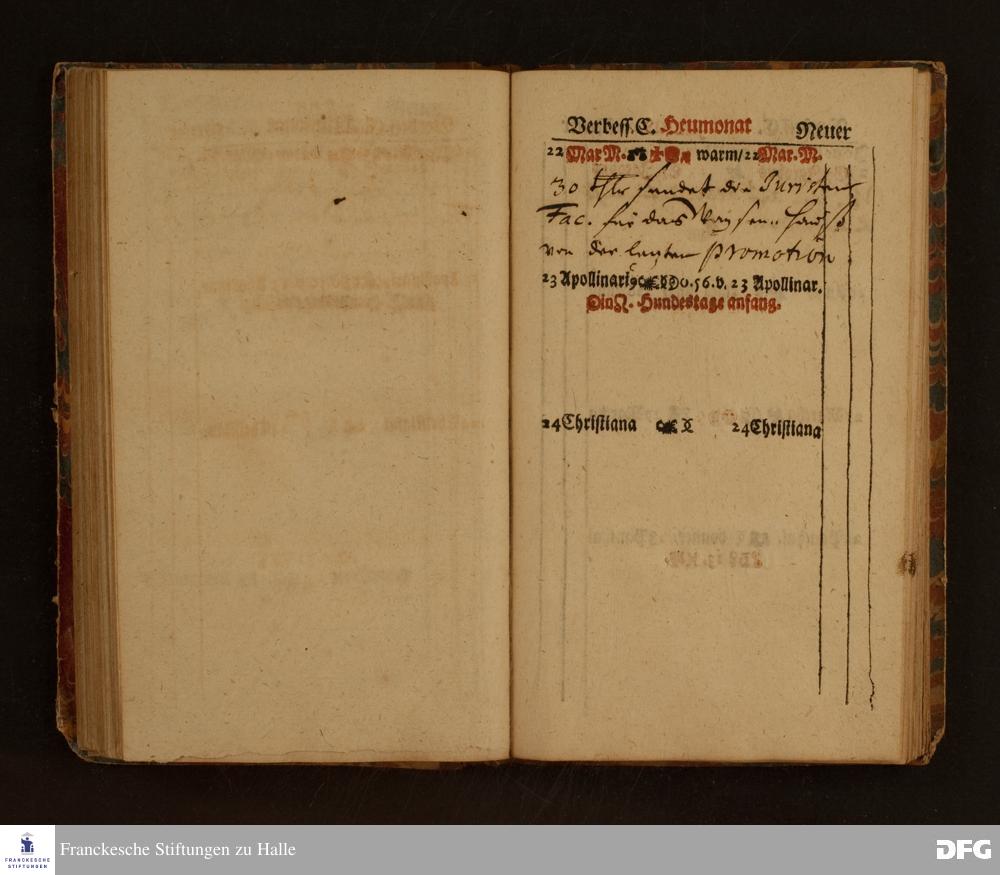 Verbess. C. Heumonat Neuer
22 Mar M. warm/ 22 Mar. M.
30 thlr sendet die Juristen
Fac. für das Waysen-hauß
von der letzten promotion
23 Apollinaris 0. 56. v. 23 Apollinar.
Hundestage anfang.
24 Christiana 24 Christiana
FRANCKESCHE STIFTUNGEN
Franckesche Stiftungen zu Halle
DFG